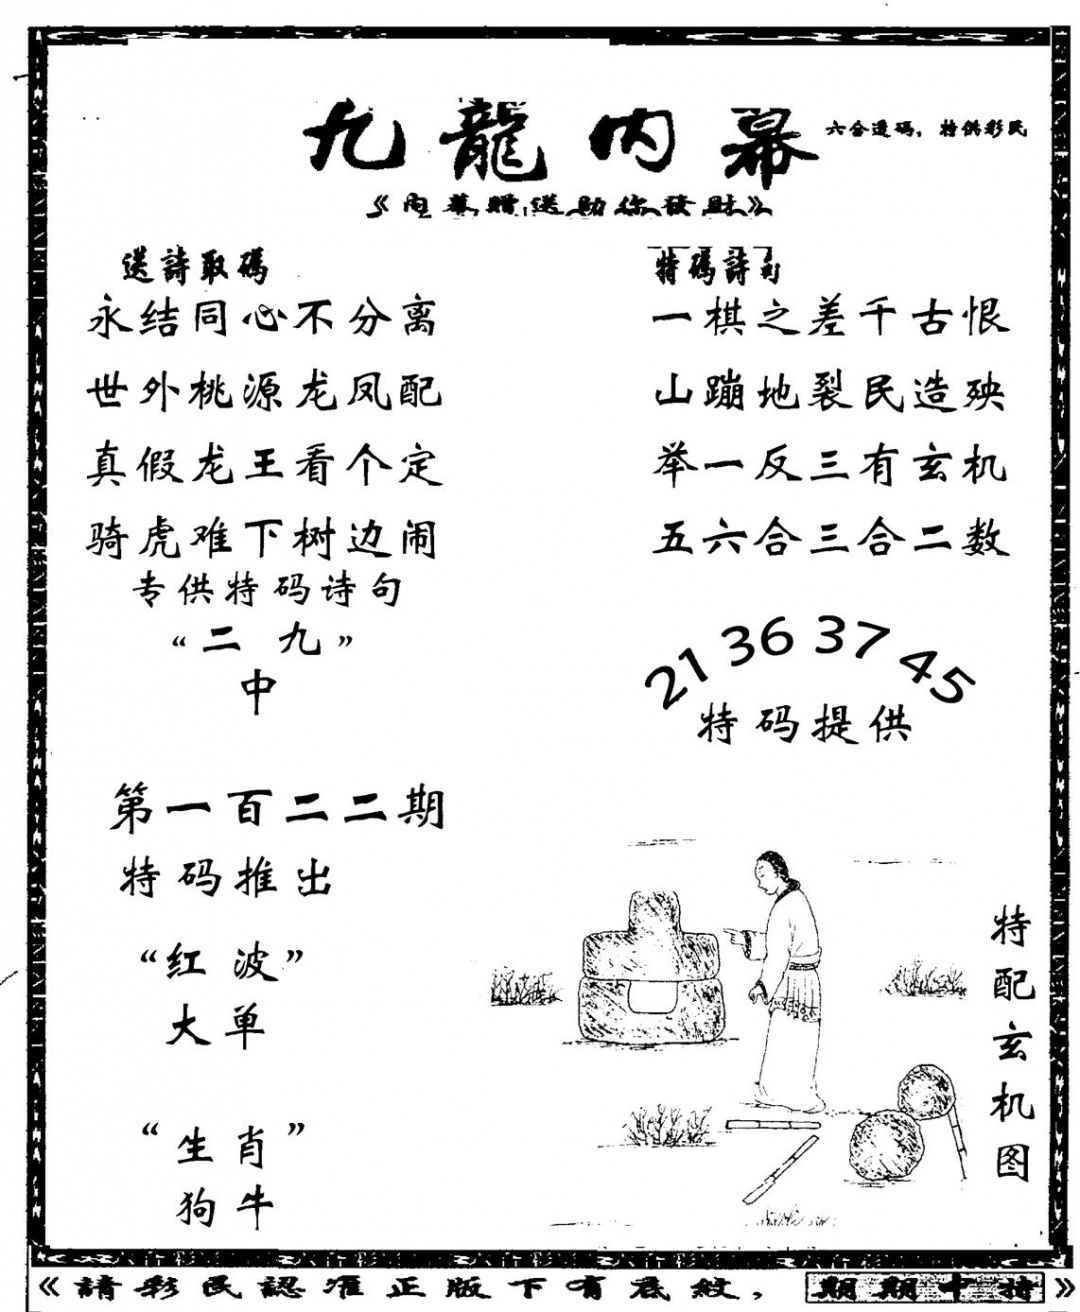 九龍内幕
六合透码，特供彩民
《内幕贈送助你發財》
送詩取碼
永结同心不分离
世外桃源龙凤配
真假龙王看个定
骑虎难下树边闹
专供特码诗句
“二九”
中
特碼詩句
一棋之差千古恨
山蹦地裂民造殃
举一反三有玄机
五六合三合二数
21 36 37 45
特码提供
第一百二二期
特码推出
“红波”
大单
“生肖”
狗牛
特配玄机图
《請彩民認准正版下有底紋，期期中特》